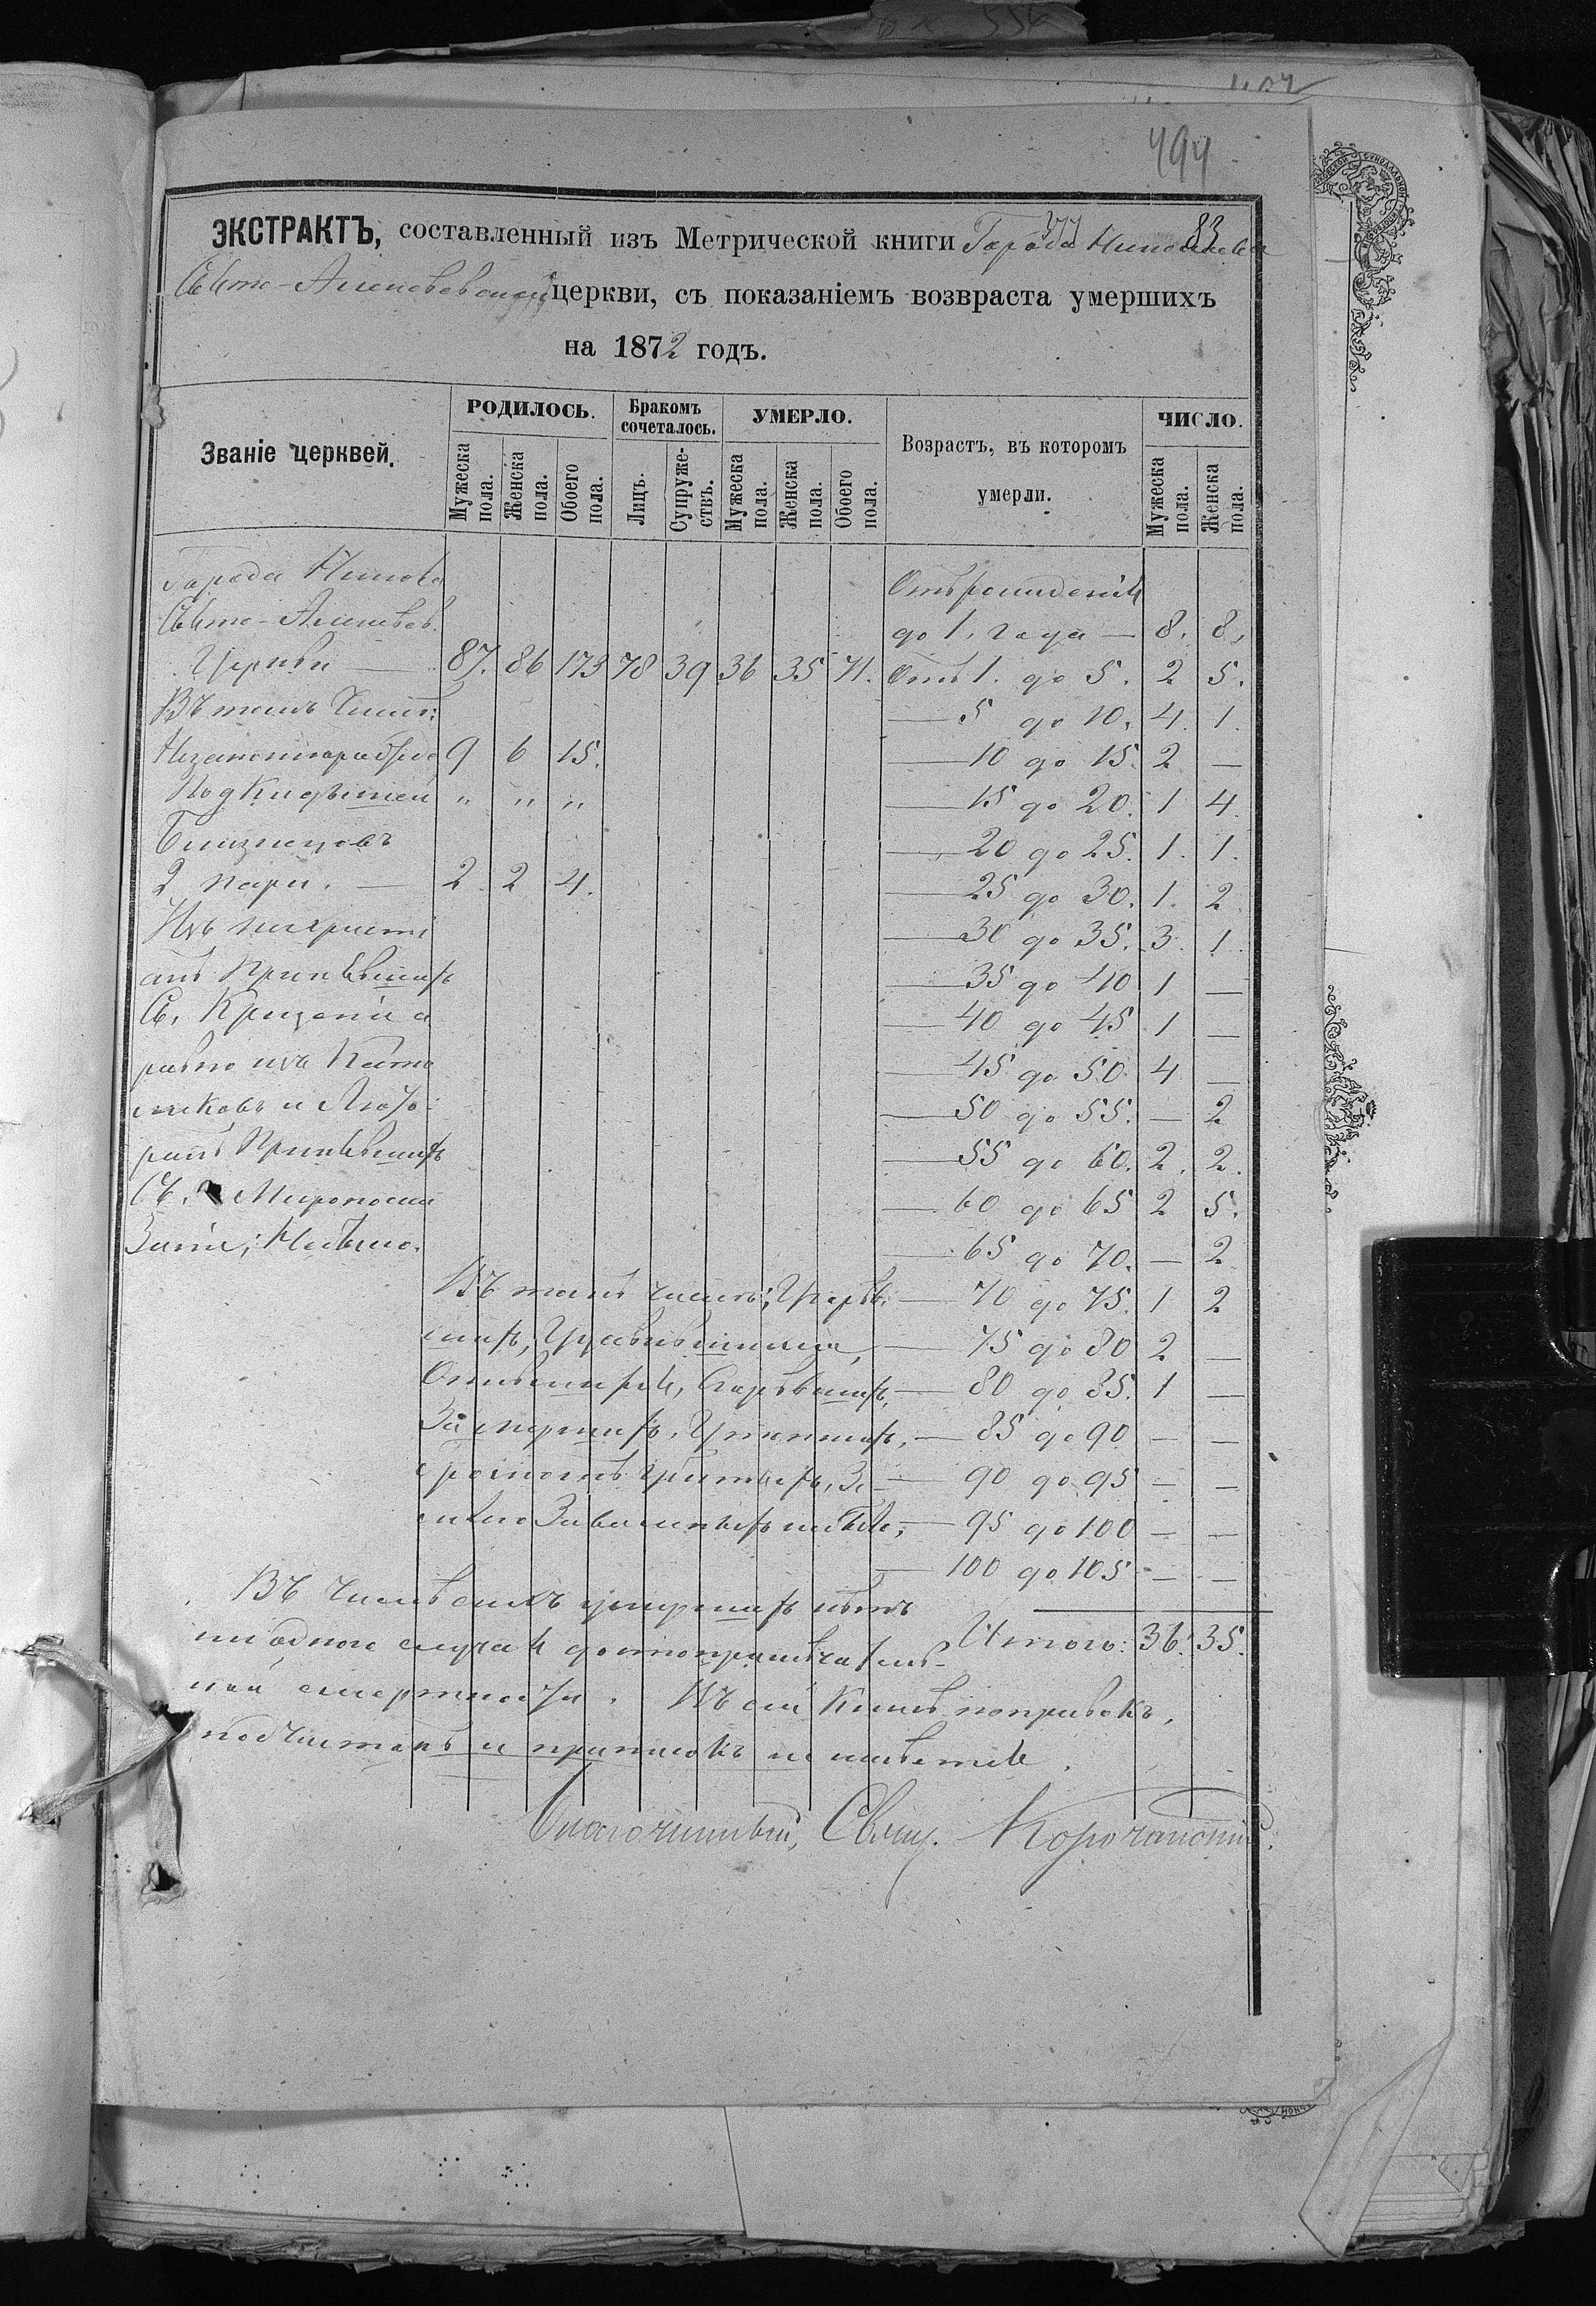 494
ЭКСТРАКТЪ, составленный изъ Метрической книги Города
83
церкви, съ показаніемъ возвраста умершихъ
на 1872 годъ.
Званіе церквей.
РОДИЛОСЬ.
Бракомъ сочеталось.
УМЕРЛО.
Возрастъ, въ которомъ умерли.
ЧИСЛО.
Мужеска пола.
Женска пола.
Обоего пола.
Лицъ.
Супружествъ.
Мужеска пола.
Женска пола.
Обоего пола.
Мужеска пола.
Женска пола.
Города
Отъ рожденія
до 1. года — 8. 8.
Церкви — 87. 86 173 78 39 36 35 71. Отъ 1. до 5. 2 5.
Въ томъ числѣ:
— 5 до 10. 4. 1.
Незаконнорабж 9 6 15. — 10 до 15. 2 —
Подкидышей " " " — 15 до 20. 1 4.
Близнецовъ — 20 до 25. 1. 1.
2 пары. — 2 2 4. — 25 до 30. 1. 2
Изъ нехристі — 30 до 35. 3. 1.
анъ принявшихъ — 35 до 40 1 —
Св. Крещеніе а — 40 до 45 1 —
равно изъ Като — 45 до 50. 4 —
ликовъ и Люте — 50 до 55. — 2
ранъ принявшихъ — 55 до 60. 2. 2.
Св. Миропома — 60 до 65 2 5.
заніе; Небыло. — 65 до 70. — 2
Въ томъ числѣ; — 70 до 75. 1 2
— 75 до 80 2 —
— 80 до 85. 1 —
— 85 до 90 — —
— 90 до 95 — —
— 95 до 100 — —
— 100 до 105 — —
Въ числѣ сихъ умершихъ нѣтъ
ни одного случая достопримѣчатель-
Итого: 36. 35.
ной смертности. Въ сей книгѣ поправокъ,
подчистокъ и приписокъ не имѣется.
Благочинный, Свящ.